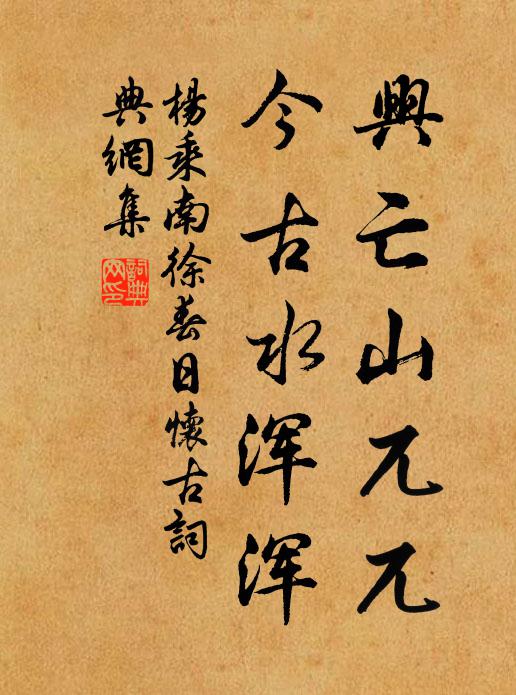 興亡山兀兀
今古水浑浑
楊乘南徐春日懷古詞
典網集
詞典
网印